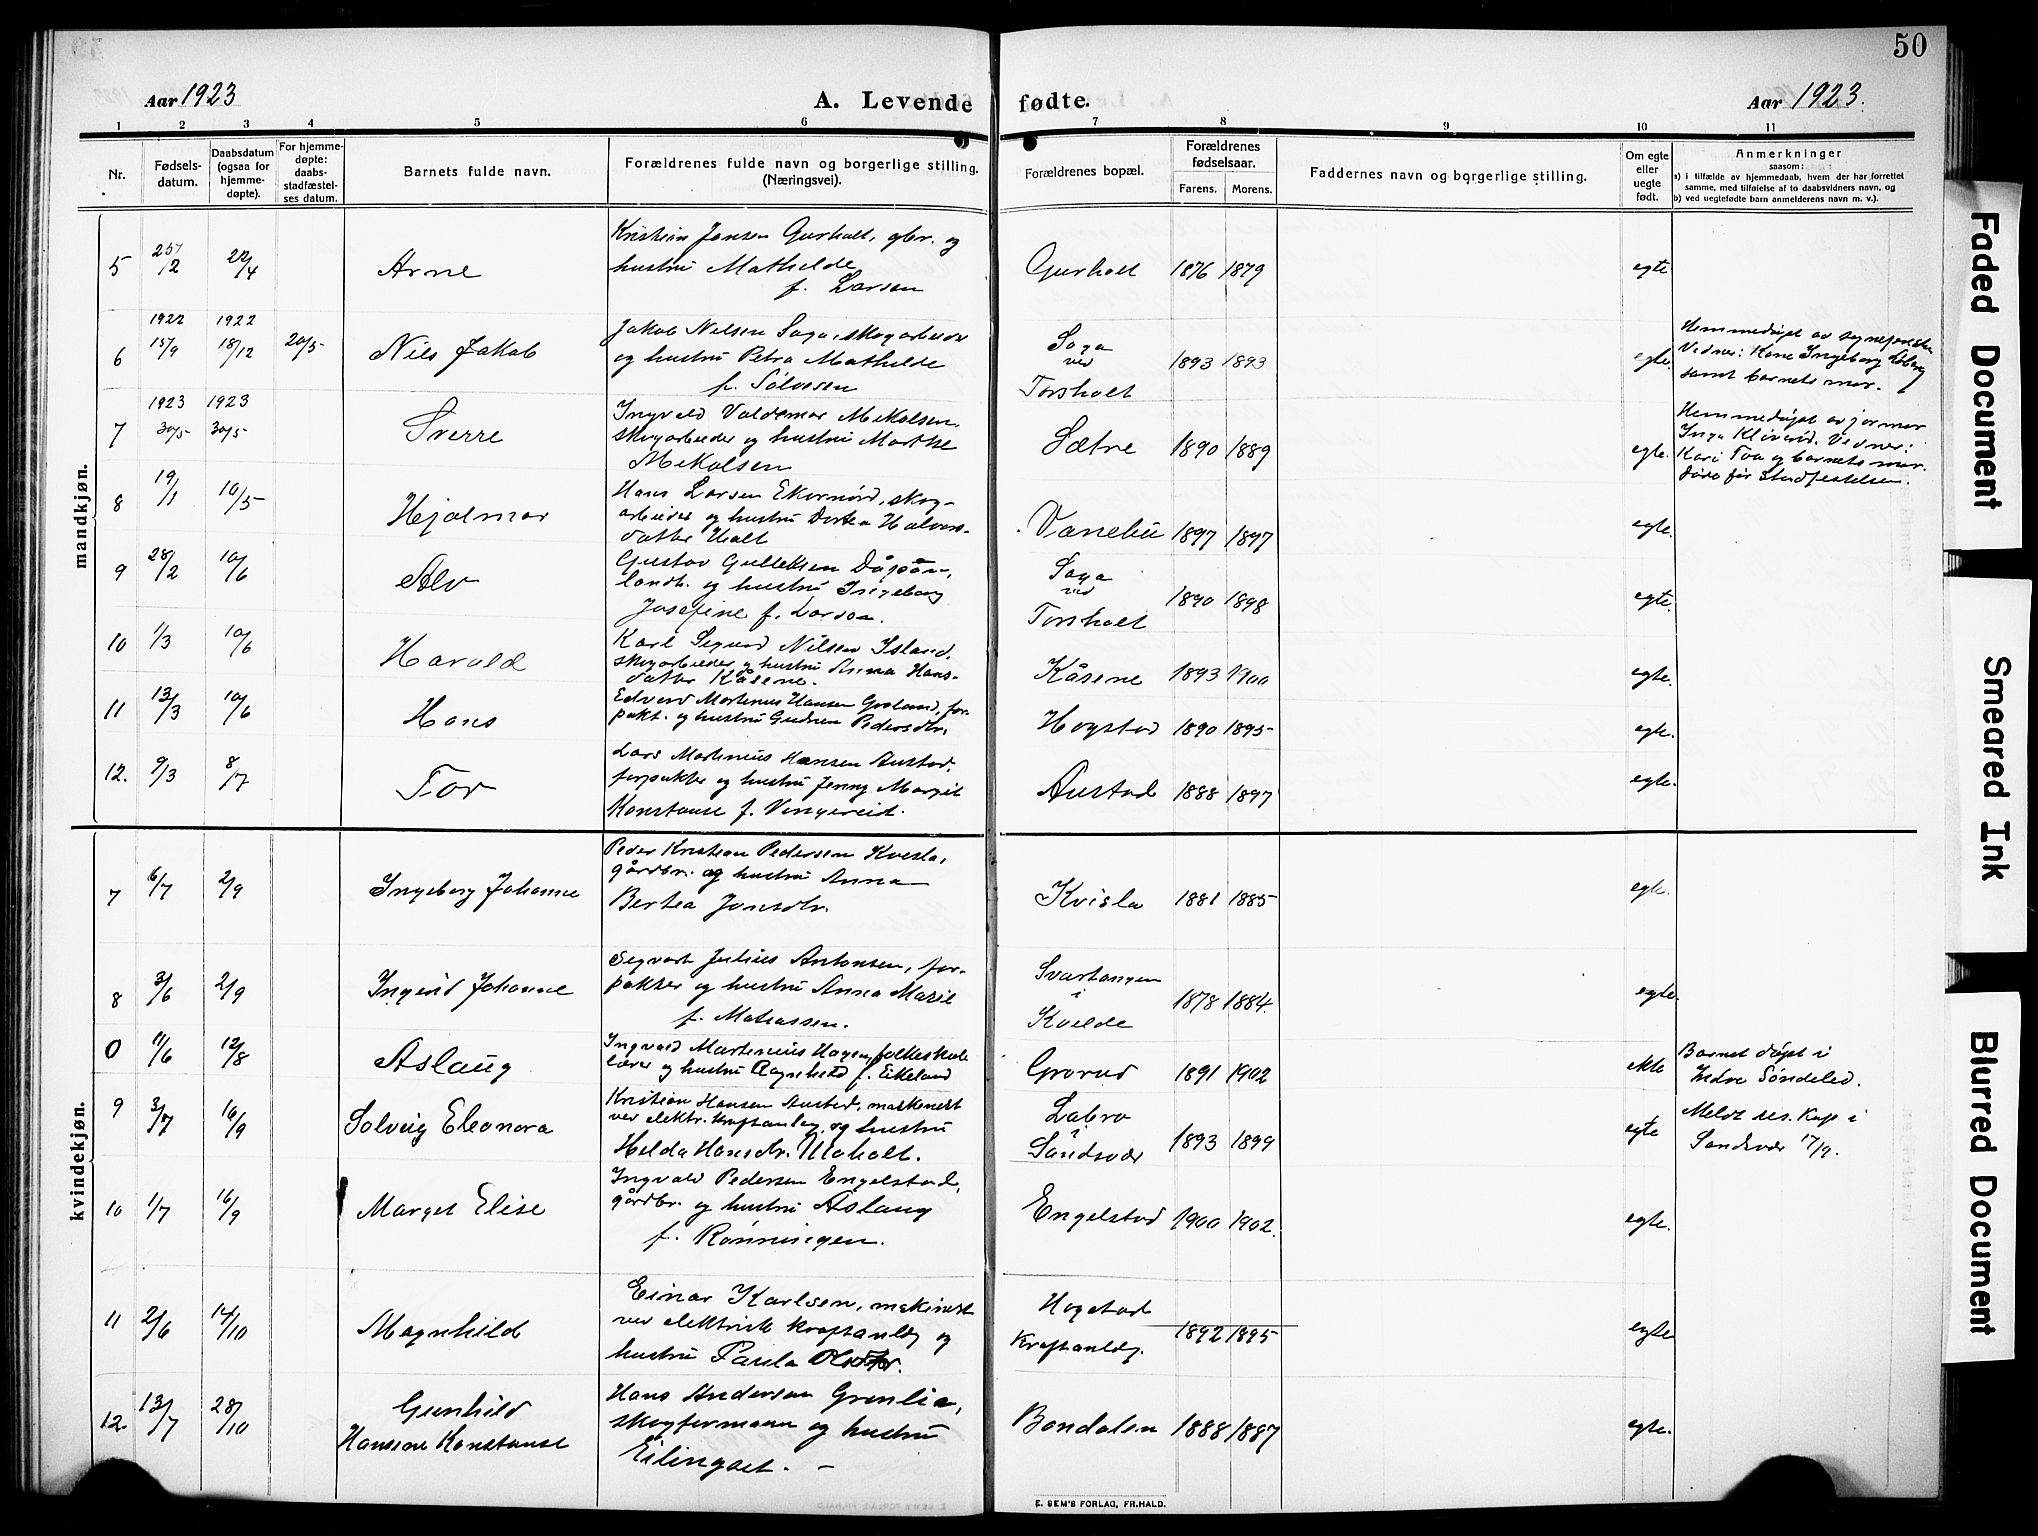 50
Aar 1923
A. Levende fødte.
Aar 1923.
1 2 3 4 5 6 7 8 9 10 11
Nr.
Fødsels-
datum.
Daabsdatum
(ogsaa for
hjemme-
døpte).
For hjemme-
døpte:
daabs-
stadfæstel-
ses datum.
Barnets fulde navn.
Forældrenes fulde navn og borgerlige stilling.
(Næringsvei).
Forældrenes bopæl.
Forældrenes
fødselsaar.
Farens. Morens.
Faddernes navn og borgerlige stilling.
Om egte
eller
uegte
født.
Anmerkninger
saasom:
a) i tilfælde av hjemmedaab, hvem der har forrettet
samme, med tilføielse af to daabsvidners navn, og
b) ved uegtefødte barn anmelderens navn m. v.).
mandkjøn.
5 25/2 22/4 Arne
Kristian Jansen Gurholt, gbr. og
hustru Mathilde
f. Larsen
Gurholt 1876 1879 egte
6 1922 15/9 1922 18/12 20/5 Nils Jakob
Jakob Nilsen Saga, skogarbeider
og hustru Petra Mathilde
f. Sølvesen
Saga
ved
Torsholt
1893 1893 egte.
Hjemmedøpt av
Vidner: Kone Ingeborg
samt barnets mor.
7 1923 30/5 1923 30/5 Sverre
Ingvald Valdemar Mikalsen,
skogarbeider og hustru Marthe
Mikalsen
Sætre 1890 1889 egte.
Hjemmedøpt av jormor
Inga Vidner:
Kari og barnets mor.
Døde før Stadfestelsen.
8 19/1 10/5 Hjalmar
Hans Larsen Ekornrød, skog-
arbeider og hustru Dortea Halvors-
datter Holt
Vanebu 1897 1897 egte.
9 28/2 10/6 Alv
Gustav Gulliksen
landh. og hustru Ingeborg
Josefine f. Larsen.
Saga
ved
Torsholt
1890 1898 egte.
10 1/3 10/6 Harald
Karl Sigurd Nilsen Island,
skogarbeider og hustru Anna Hans-
datter Kåsene.
Kåsene 1893 1900 egte.
11 13/3 10/6 Hans
Edvard Martinius Hansen for-
pakt. og hustru Gudrun Pedersdtr.
Hogstad 1890 1895 egte.
12. 9/3 8/7 Tor
Lars Martinius Hansen Austad,
forpakter og hustru Jenny Margit
Konstanse f. Vingereid.
Austad 1888 1897 egte.
kvindekjøn.
7 6/7 2/9 Ingeborg Johanne
Peder Kristian Pedersen Kvisla,
gårdbr. og hustru Anna
Bertea Jansdtr.
Kvisla 1881 1885 egte.
8 3/6 2/9 Ingrid Johanne
Sigvart Julius Antonsen, for-
pakter og hustru Anna Marie
f. Matiassen.
Svartangen
i
Kvelde
1878 1884. egte.
0 11/6 12/8 Aslaug
Ingvald Martinius Hagen, folkeskole
lærer og hustru Ragnhild f. Eikeland
Grorud 1891 1902 ekte
Barnet døpt i
Indre Søndeled.
9 3/7 16/9 Solveig Eleonora
Kristian Hansen Austad, maskinist
ved elektr. kraftanlæg, og hustru
Hilda Hansdtr. Moholt.
Labro
i
Sandsvær
1893 1899 egte
Meldt res. Kap i
Sandsvær 17/9.
10 1/7 16/9 Margit Elise
Ingvald Pedersen Engelstad,
gårdbr. og hustru Aslaug
f. Rønningen.
Engelstad 1900 1902. egte.
11 2/6 14/10 Magnhild
Einar Karlsen, maskinist
ved elektrisk kraftanlæg og
hustru Paula
Hogstad
Kraftanlæg.
1892 1895 egte
12. 13/7 28/10 Gunhild
Hansine Konstanse
Hans Andersen Grønlia,
skogformann og hustru
Bondalen 1888 1887 egte.
E. SEM'S FORLAG, FR.HALD.
Faded Document
Smeared Ink
Blurred Document